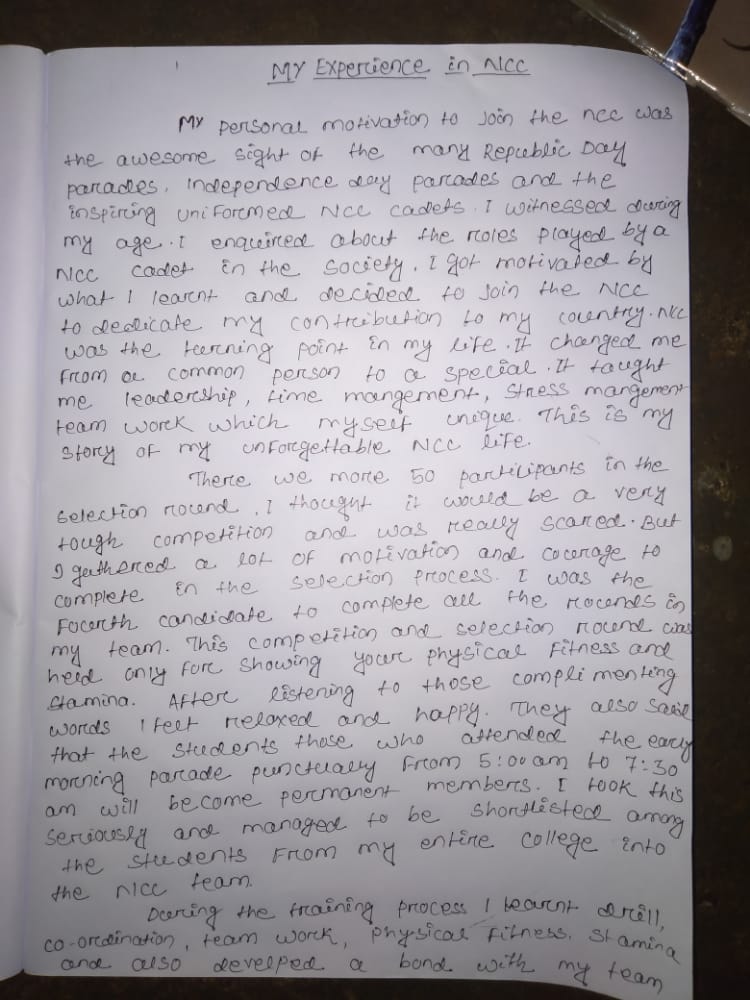 My Experience in NCC
My personal motivation to Join the ncc was
the awesome sight of the many Republic Day
parades, Independence day parades and the
inspiring uniformed NCC cadets. I witnessed during
my age. I enquired about the roles played by a
NCC cadet in the society. I got motivated by
what I learnt and decided to Join the NCC
to dedicate my contribution to my country. NCC
was the turning point in my life. It changed me
from a common person to a special. It taught
me leadership, time mangement, stress mangement
team work which myself unique. This is my
story of my unforgettable NCC life.
There we more 50 participants in the
selection round. I thought it would be a very
tough competition and was really scared. But
I gathered a lot of motivation and courage to
complete in the selection process. I was the
fourth candidate to complete all the rounds in
my team. This competition and selection round was
held only for showing your physical fitness and
stamina. After listening to those complimenting
words I felt relaxed and happy. They also said
that the students those who attended the early
morning parade punctually from 5:00 am to 7:30
am will become permanent members. I took this
seriously and managed to be shortlisted among
the students from my entire college into
the NCC team.
During the training process I learnt drill,
co-ordination, team work, physical fitness. stamina
and also develped a bond with my team